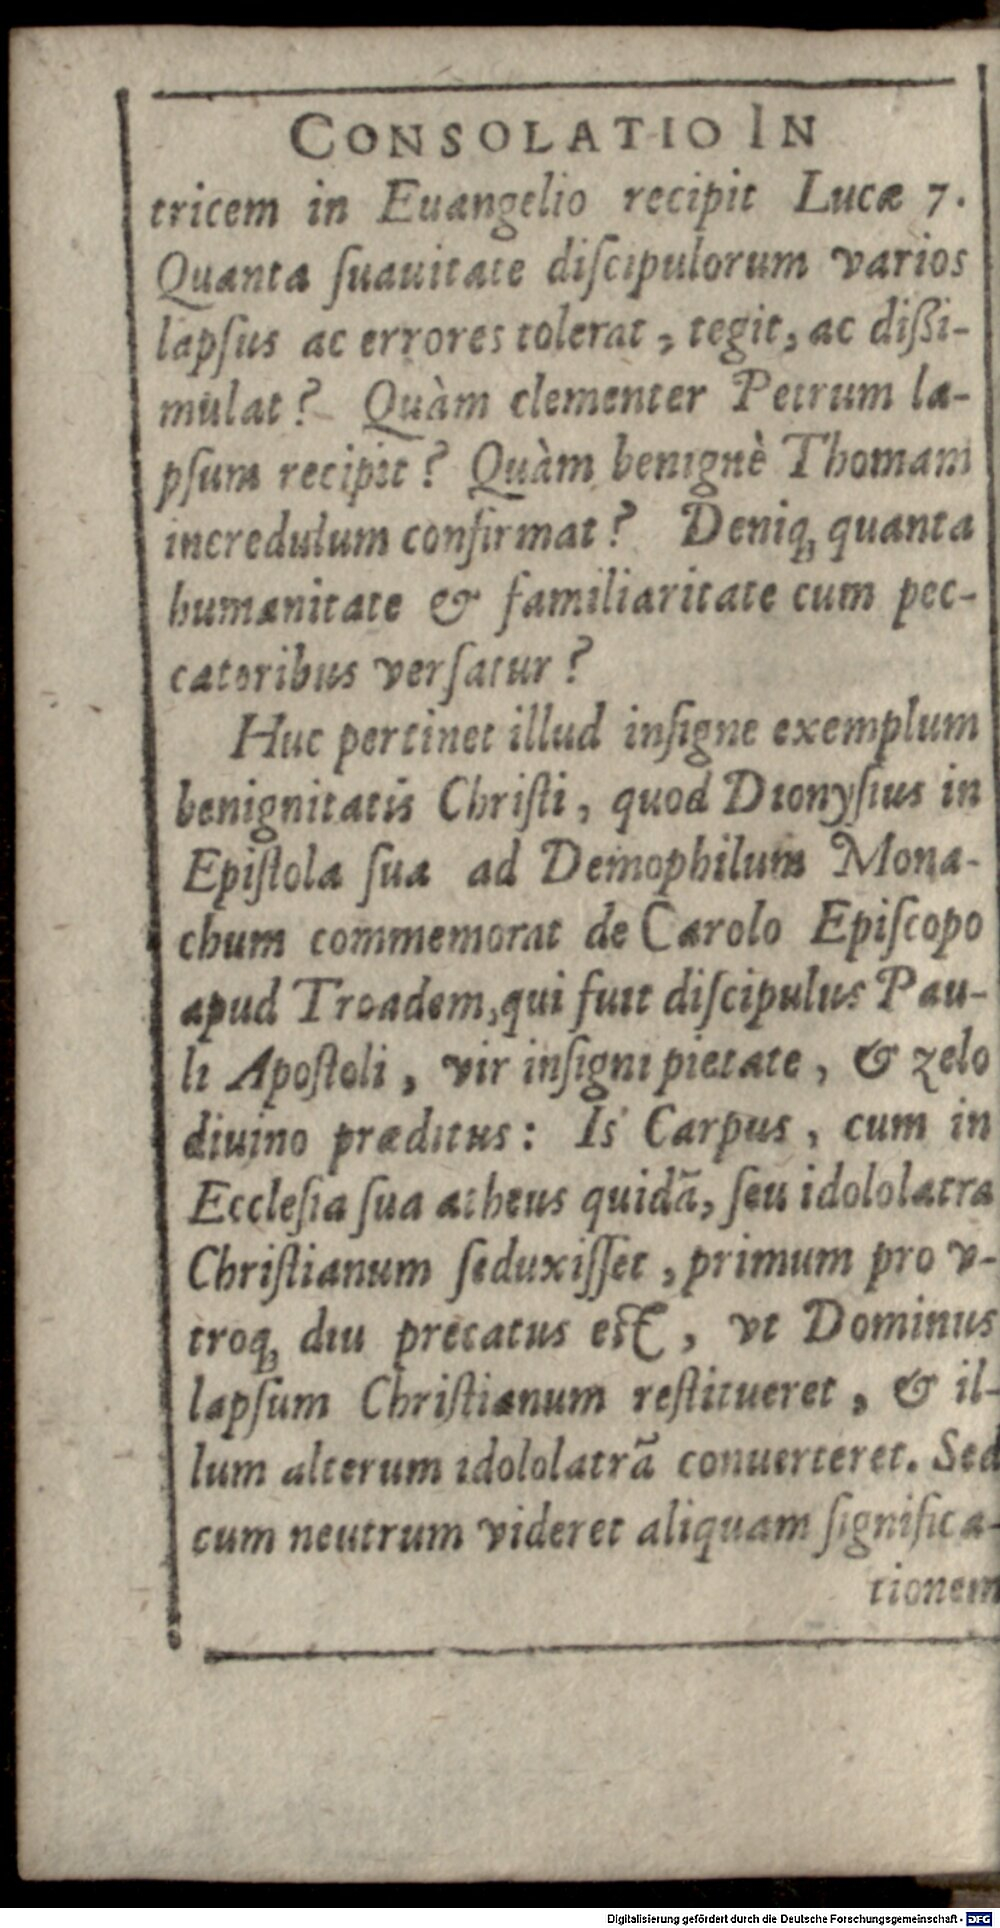 CONSOLATIO IN
tricem in Euangelio recipit Lucæ 7.
Quanta ſuauitate diſcipulorum varios
lapſus ac errores tolerat, tegit, ac dißi-
mulat? Quàm clementer Petrum la-
pſum recipit? Quàm benignè Thomam
incredulum confirmat? Deniq; quanta
humanitate & familiaritate cum pec-
catoribus verſatur?
Huc pertinet illud inſigne exemplum
benignitatis Chriſti, quod Dionyſius in
Epiſtola ſua ad Demophilum Mona-
chum commemorat de Carolo Epiſcopo
apud Troadem, qui fuit diſcipulus Pau-
li Apoſtoli, vir inſigni pietate, & zelo
diuino præditus: Is Carpus, cum in
Eccleſia ſua atheus quidã, ſeu idololatra
Chriſtianum ſeduxiſſet, primum pro v-
troq; diu precatus eſt, vt Dominus
lapſum Chriſtianum reſtitueret, & il-
lum alterum idololatrã conuerteret. Sed
cum neutrum videret aliquam ſignifica-
tionem
Digitalisierung gefördert durch die Deutsche Forschungsgemeinschaft - DFG